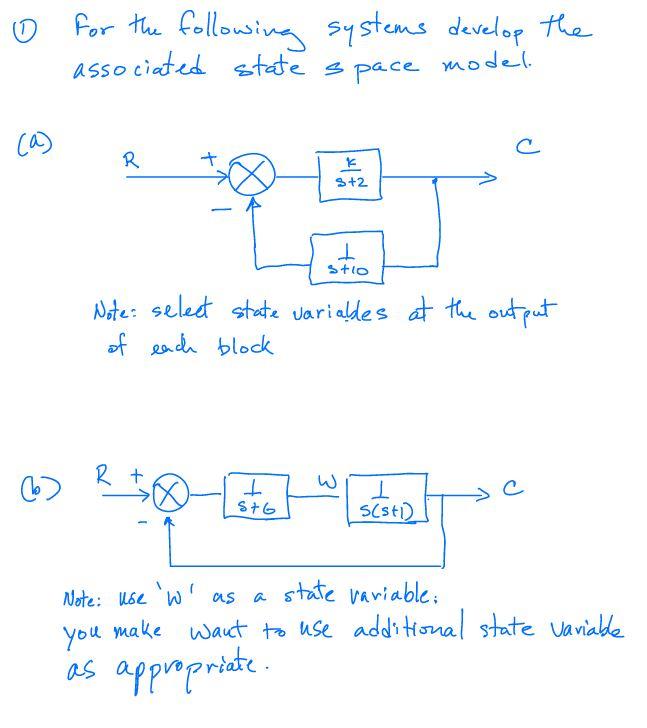 ① For the following systems develop the
associated state space model.
(a)
R + K/s+2 C
-
1/s+10
Note: select state variables at the output
of each block
(b) R + 1/s+6 W 1/s(s+1) C
-
Note: use 'W' as a state variable;
you make want to use additional state variable
as appropriate.